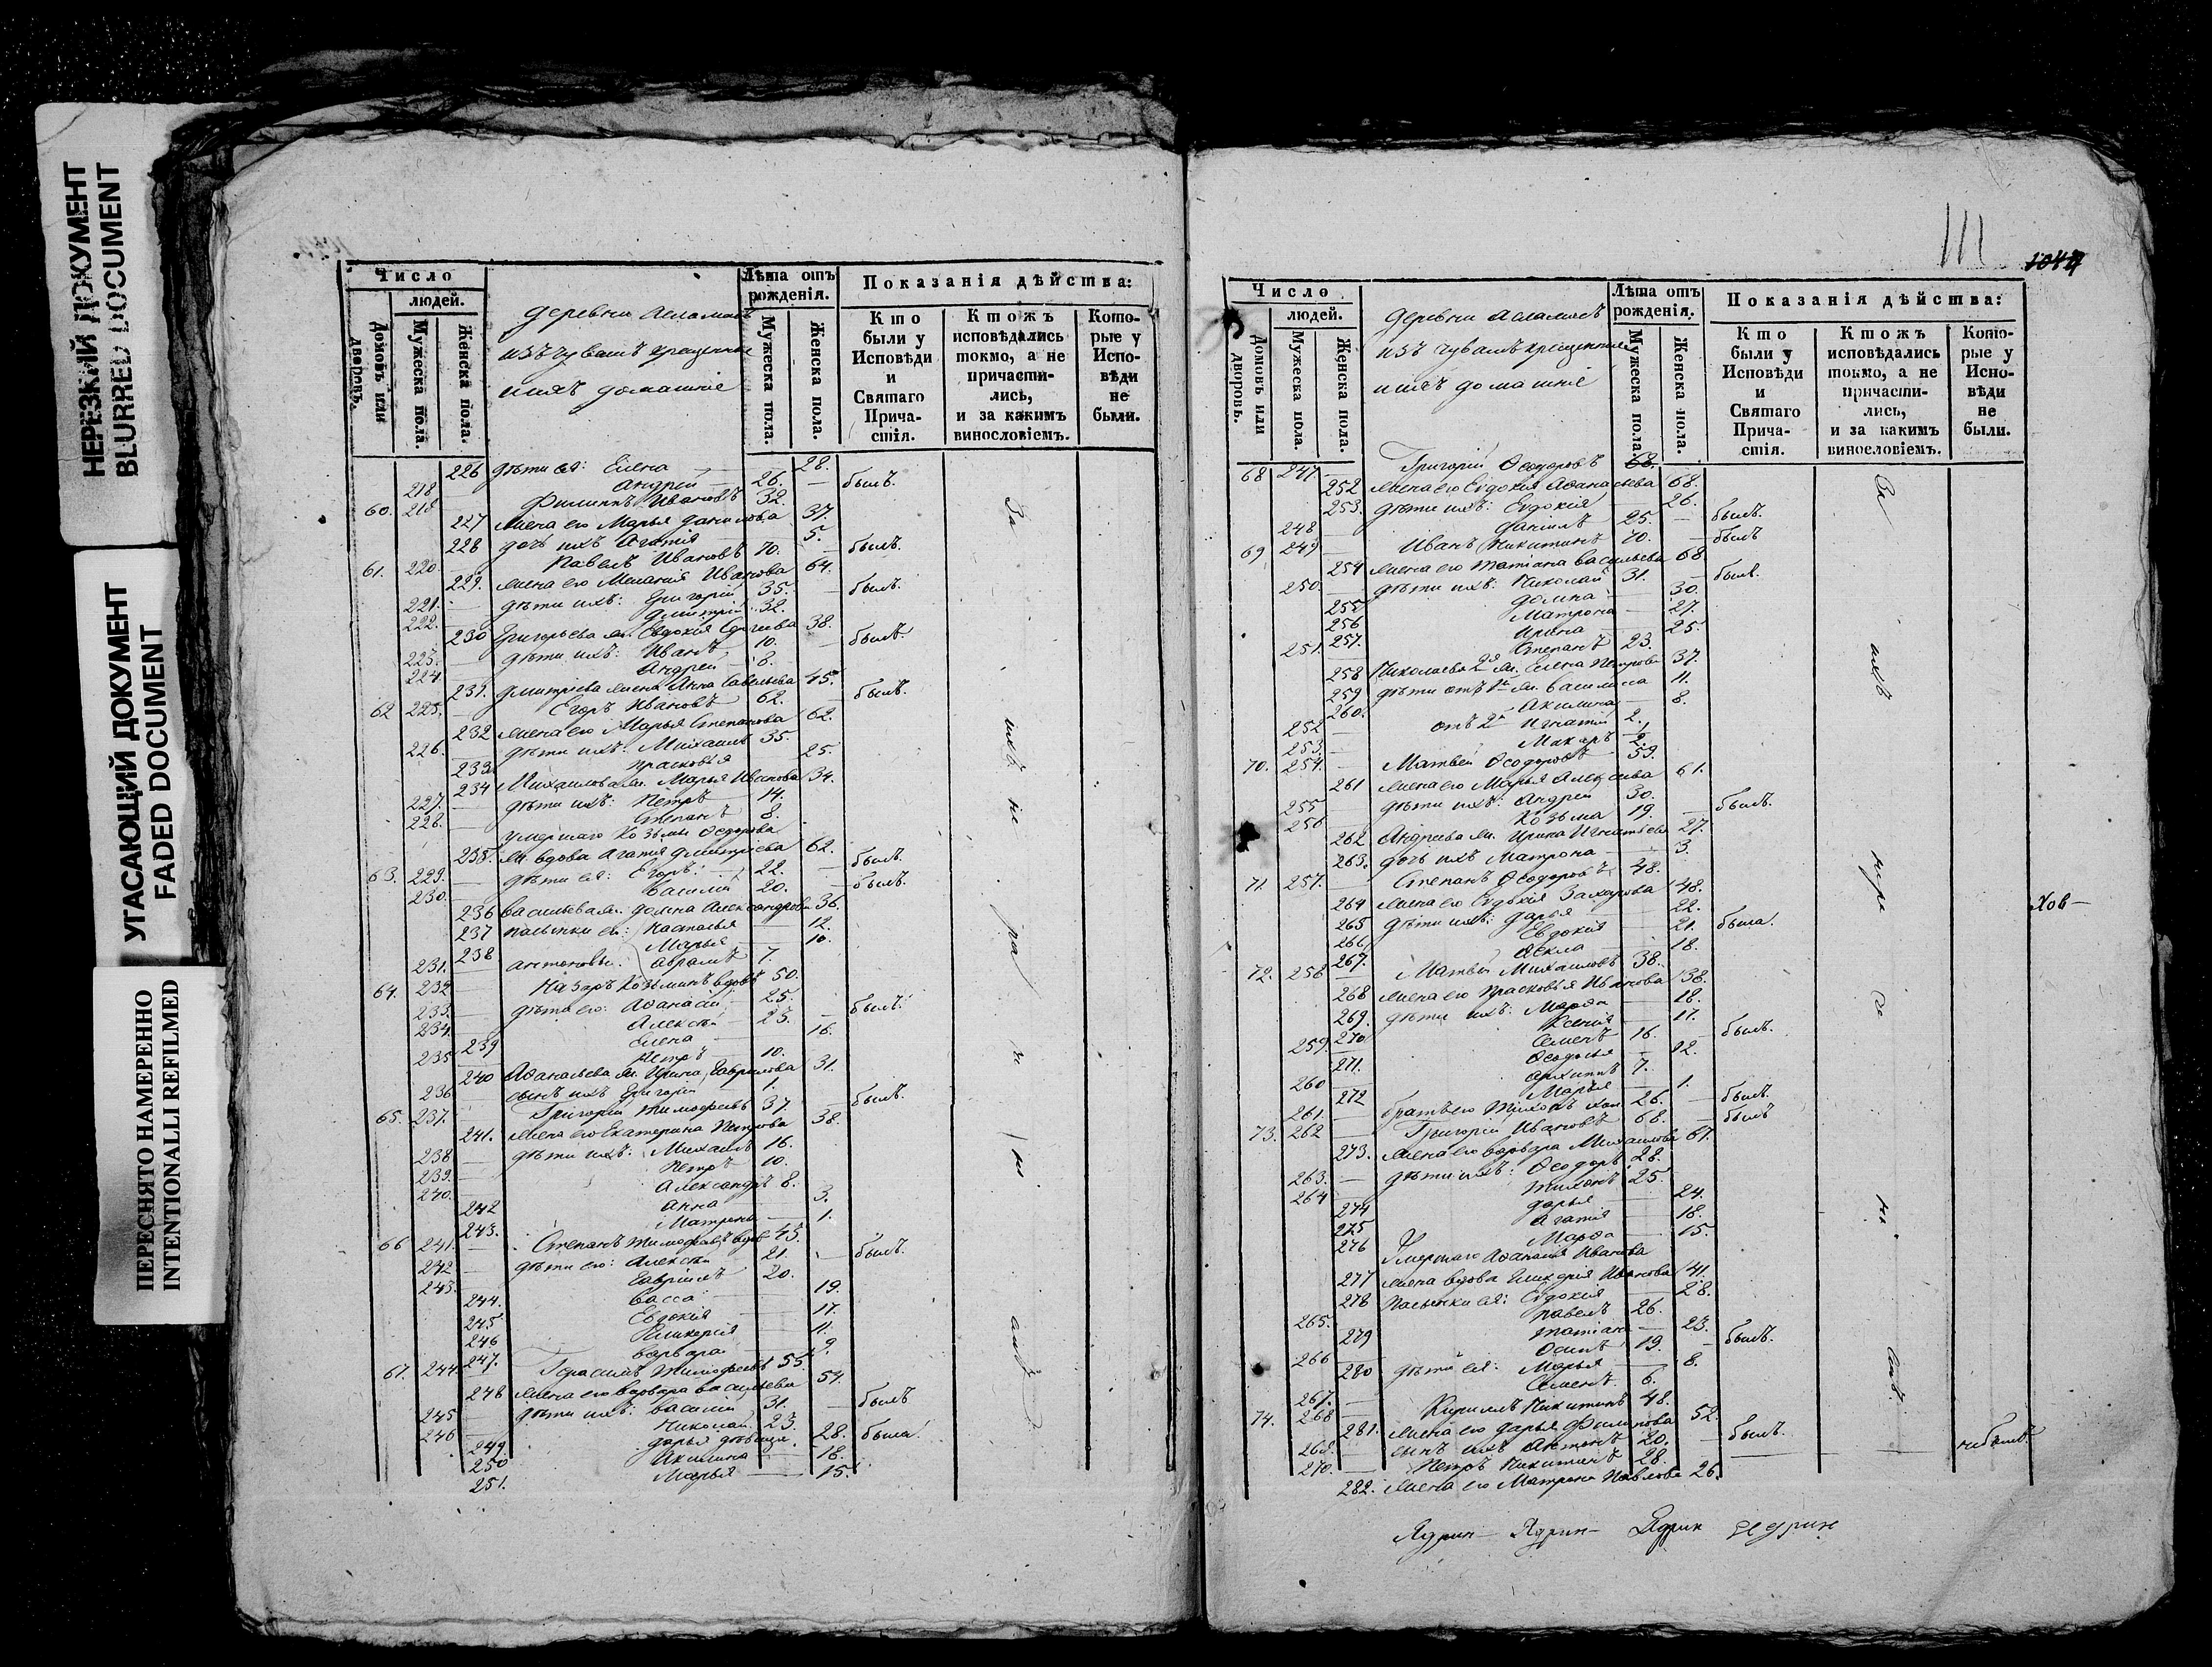 НЕРЕЗКИЙ ДОКУМЕНТ
BLURRED DOCUMENT
УГАСАЮЩИЙ ДОКУМЕНТ
FADED DOCUMENT
ПЕРЕСНЯТО НАМЕРЕННО
INTENTIONALLI REFILMED
Число
людей.
Домовъ или дворовъ.
Мужеска пола.
Женска пола.
деревни
изъ чувашъ крещенные
и ихъ домашніе
Лѣта отъ рожденія.
Мужеска пола.
Женска пола.
Показанія дѣйства:
Кто были у Исповѣди и Святаго Причастія.
Ктожъ исповѣдались токмо, а не причастились, и за какимъ винословіемъ.
Которые у Исповѣди не были.
226 дѣти ея: Елена — 28.
218 Андрей — 26. — былъ.
60. 218 Филиппъ Ивановъ 32.
227 жена его Марья Данилова 37.
228 дочь ихъ Агафія — 5.
61. 220. Павелъ Ивановъ 70. — былъ.
229. жена его Меланія Иванова 64.
221. — дѣти ихъ: Григорій 35. — былъ.
222. — Дмитрій 32.
230 Григорьева ж. Евдокія Сергѣева 38.
223. — дѣти ихъ: Иванъ 10. — былъ.
224. Андрей — 8.
231. Дмитріева жена Анна Савельева 45.
62 225. — Егоръ Ивановъ 62. — былъ.
232 жена его Марья Степанова 62.
226. дѣти ихъ: Михаилъ 35.
233 Прасковья 25
234 Михаилова ж. Марья Иванова 34.
227. — дѣти ихъ: Петръ 14.
228. — Степанъ 8.
умершаго Козьмы Ѳедорова
235. ж. вдова Агафія Дмитріева 62.
63. 229. — дѣти ея: Егоръ: — 22. — былъ.
230. — Василій 20. — былъ.
236 Васильева ж. Домна Александрова 36.
237 пасынки ея: Настасья — 12.
238 Марья — 10.
231. Антоновы. Аврамъ 7.
64. 232 — Назаръ Козьминъ вдовъ 50.
233. — дѣти его: Аѳанасій 25. — былъ.
234. Алексѣй — 23.
239 Елена — 16.
235 Петръ 10.
240 Аѳанасьева ж. Ирина Гаврилова 31.
236 — сынъ ихъ Григорій 1.
65. 237. — Григорій Тимофеевъ 37. — былъ.
241. жена его Екатерина Петрова 38.
238 — дѣти ихъ: Михаилъ 16.
239. — Петръ 10.
240. Александръ 8.
242 Анна — 3.
243. Матрена — 1.
66 241. — Степанъ Тимофеевъ вдов 45.
242 — дѣти его: Алексѣй 21. — былъ.
243. Гавріилъ 20.
244. Васса — 19.
245 Евдокія — 17.
246 Гликерія — 11.
247. Варвара — 9.
67. 244. Герасимъ Тимофеевъ 55.
248 жена его Варвара Васильева 54.
245 — дѣти ихъ: Василій 31. — былъ
246 — Николай 23.
249. Дарья дѣвица 28. была.
250 Акилина — 18.
251. Марья — 15.
111
Число
людей.
Домовъ или дворовъ.
Мужеска пола.
Женска пола.
деревни
изъ чувашъ крещенные
и ихъ домашніе
Лѣта отъ рожденія.
Мужеска пола.
Женска пола.
Показанія дѣйства:
Кто были у Исповѣди и Святаго Причастія.
Ктожъ исповѣдались токмо, а не причастились, и за какимъ винословіемъ.
Которые у Исповѣди не были.
68 247. — Григорій Ѳеодоровъ 68.
252 жена его Евдокія Аѳанасьева 68.
253. дѣти ихъ: Евдокія — 26.
248 Даніилъ 25. — былъ.
69 249 — Иванъ Никитинъ 70. — былъ
254 жена его Татіана Васильева 68
250. — дѣти ихъ: Николай 31. — былъ.
255 Домна — 30.
256 Матрона — 27.
257. Ирина — 25.
251. Степанъ 23.
258 Николаева 2я ж. Елена Петрова 37.
259 дѣти отъ 1й ж. Василиса 11.
260. Акилина — 8.
252 — отъ 2й Игнатій 2.
253. — Макаръ 2.
70. 254. — Матвей Ѳеодоровъ 59.
261 жена его Марья Алексѣева 61.
255 дѣти ихъ: Андрей 30.
256 Козьма 19. — былъ.
262 Андреева ж. Ирина Игнатьева 27.
263. дочь ихъ Матрона — 3.
71. 257. — Степанъ Ѳеодоровъ 48.
264 жена его Евдокія Захарова 48.
265 дѣти ихъ: Дарья — 22.
266 Евдокія — 21. была.
267. Ѳекла — 18.
72. 258 — Матвей Михаиловъ 38.
268 жена его Прасковья Иванова 38.
269. дѣти ихъ: Марѳа — 18.
270 Ксенія — 17.
259. Семенъ 16. — былъ.
271. Ѳеодосья — 12.
260 Архиппъ 7.
272 Марья — 1.
261. братъ его Тихонъ хол. 26. — былъ.
73. 262 — Григорій Ивановъ 68. — былъ
273. жена его Варвара Михаилова 67.
263. — дѣти ихъ: Ѳеодоръ 28.
264 Тихонъ 25.
274 Дарья — 24.
275 Агафія — 18.
276 Марѳа — 15.
Умершаго Аѳанасія Иванова
277 жена вдова Гликерія Иванова 41.
278 пасынки ея: Евдокія — 28.
265. Павелъ 26.
279 Татіана — 23.
266 Осипъ 19. — былъ.
280 дѣти ея: Марья — 8.
267. Семенъ 6.
74. 268 — Кирилъ Никитинъ 48.
281. жена его Дарья Филипова 52.
268. сынъ ихъ Антонъ 20. — былъ.
270. — Петръ Никитинъ 28. — — небылъ.
282. жена его Матрона Павлова 26.
Хов—
Ядрин— Ядрин— Ядрин